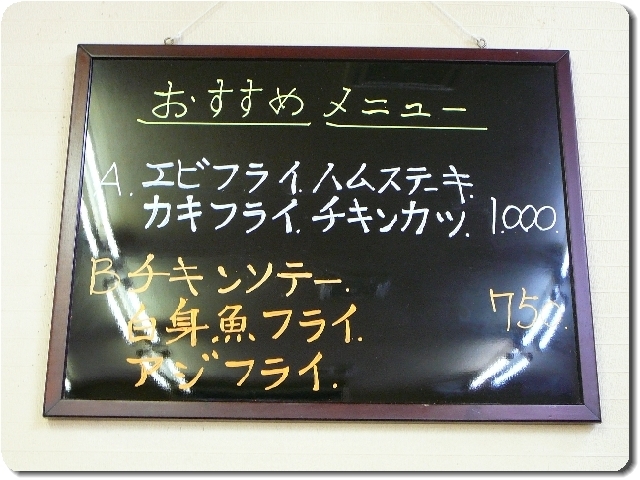 おすすめ メニュー
A. エビフライ. ハムステーキ.
カキフライ. チキンカツ. 1.000.
B チキンソテー.
白身魚フライ. 750.
アジフライ.